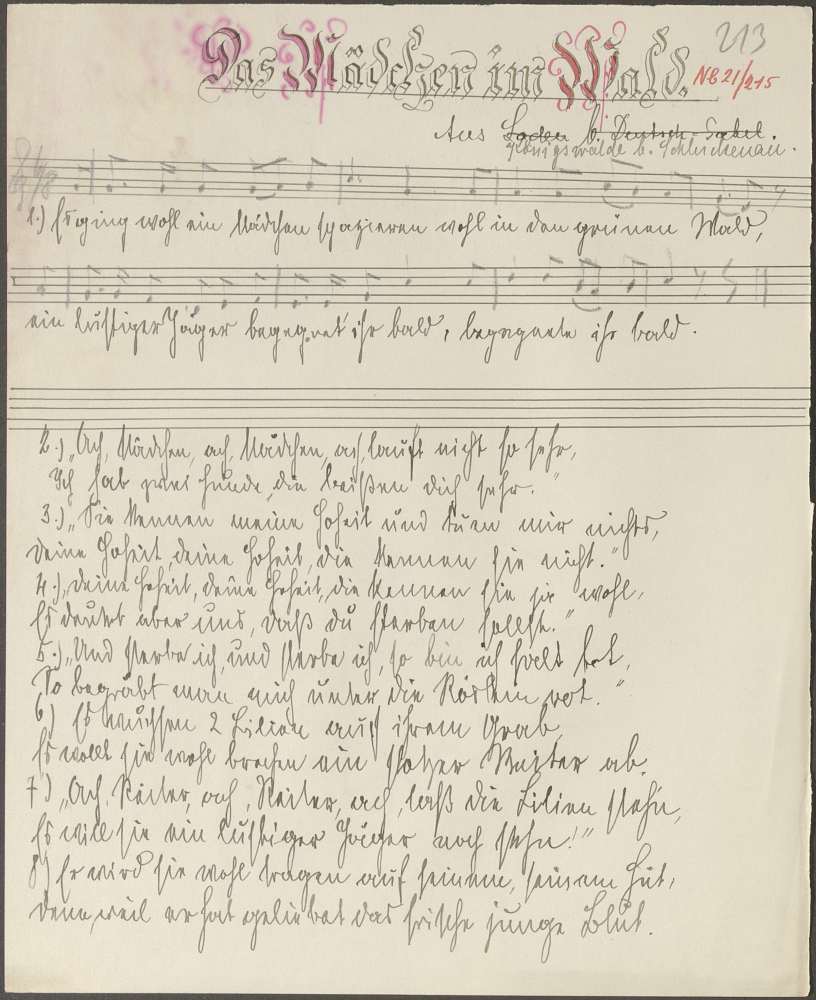 Das Mädchen im Wald.
213
NB 21/215
Aus b. Deutsch-Gabel.
Königswalde b. Schluckenau.
1.) Es ging wohl ein Mädchen spazieren wohl in den grünen Wald,
ein lustiger Jäger begegnet' ihr bald, begegnete ihr bald.
2.) „Ach, Mädchen, ach, Mädchen, ach, lauft nicht so sehr,
Ich hab zwei Hunde, die beißen dich sehr."
3.) „Sie kennen meine Hoheit und tuen mir nichts,
deine Hoheit, deine Hoheit, die kennen sie nicht."
4.) „deine Hoheit, deine Hoheit, die kennen sie wohl,
Es deutet aber uns, daß du sterben sollst."
5.) „Und sterbe ich, und sterbe ich, so bin ich halt tot,
So begräbt man mich unter die Röslein rot."
6.) Es wuchsen 2 Lilien auf ihrem Grab,
Es wollt sie wohl brechen ein stolzer Reiter ab.
7.) „Ach, Reiter, ach, Reiter, ach, laß die Lilien stehn,
Es will sie ein lustiger Jäger noch sehn!"
8.) Er wird sie wohl tragen auf seinem, seinem Hut,
denn, weil er hat geliebet das frische junge Blut.